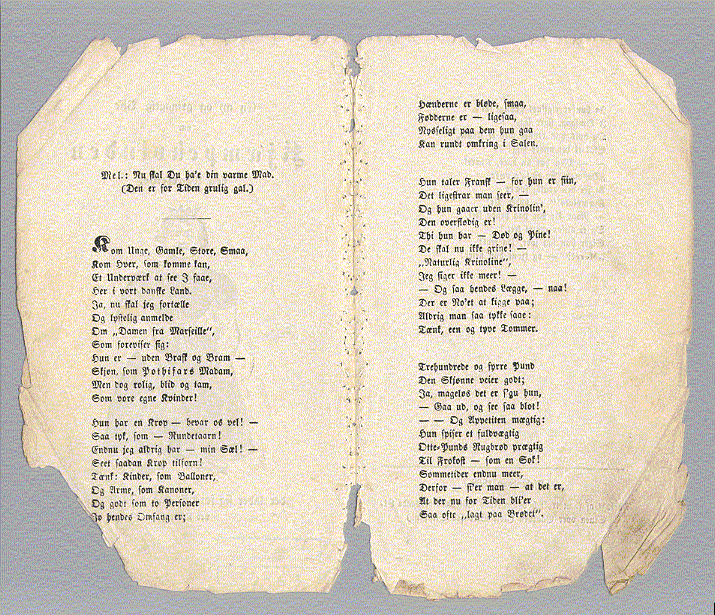 Mel.: Nu skal Du ha'e din varme Mad.
(Den er for Tiden grulig gal.)
Kom Unge, Gamle, Store, Smaa,
Kom Hver, som komme kan,
Et Underværk at see I faae,
Her i vort danske Land.
Ja, nu skal jeg fortælle
Og lystelig anmelde
Om „Damen fra Marseille“,
Som foreviser sig:
Hun er — uden Brask og Bram —
Skjøn, som Pothifars Madam,
Men dog rolig, blid og tam,
Som vore egne Kvinder!
Hun har en Krop — bevar os vel! —
Saa tyk, som — Rundetaarn!
Endnu jeg aldrig har — min Sæl! —
Seet saadan Krop tilforn!
Tænk: Kinder, som Balloner,
Og Arme, som Kanoner,
Og godt som to Personer
Jo hendes Omfang er;
Hænderne er bløde, smaa,
Fødderne er — ligesaa,
Nysseligt paa dem hun gaa
Kan rundt omkring i Salen.
Hun taler Fransk — for hun er fiin,
Det ligestrax man seer, —
Og hun gaaer uden Krinolin',
Den overflødig er!
Thi hun har — Død og Pine!
De skal nu ikke grine! —
„Naturlig Krinoline“,
Jeg siger ikke meer! —
— Og saa hendes Lægge, — naa!
Der er No'et at kigge paa;
Aldrig man saa tykke saae:
Tænk, een og tyve Tommer.
Trehundrede og fyrre Pund
Den Skjønne veier godt;
Ja, mageløs det er s'gu hun,
— Gaa ud, og see saa blot!
— — Og Appetiten mægtig:
Hun spiser et fuldvægtig
Otte-Punds Rugbrød prægtig
Til Frokost — som en Sok!
Sommetider endnu meer,
Derfor — si'er man — at det er,
At der nu for Tiden bli'er
Saa ofte „lagt paa Brødet“.